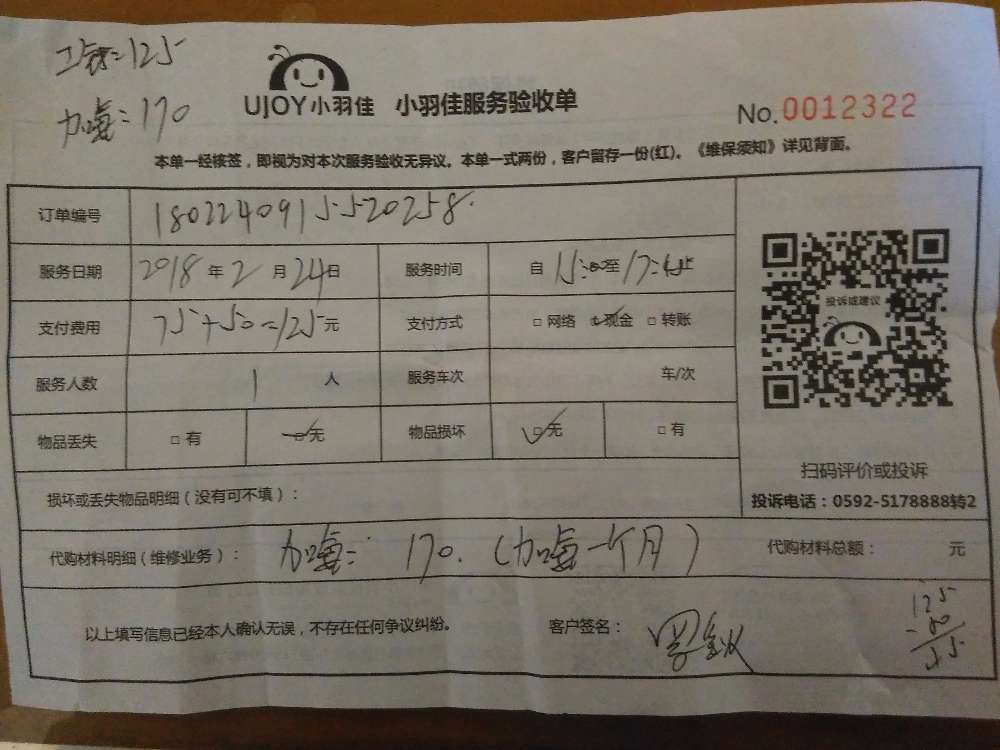 工钱:125
加噸:170
UJOY小羽佳 小羽佳服务验收单
No.0012322
本单一经核签，即视为对本次服务验收无异议。本单一式两份，客户留存一份(红)。《维保须知》详见背面。
订单编号 1802240915520258
服务日期 2018年2月24日 服务时间 自15:00至17:45止
支付费用 75+50=125元 支付方式 □网络 ☑现金 □转账
服务人数 1人 服务车次 车/次
物品丢失 □有 ☑无 物品损坏 ☑无 □有
投诉或建议
扫码评价或投诉
投诉电话：0592-5178888转2
损坏或丢失物品明细（没有可不填）：
代购材料明细（维修业务）： 170.（ 一个月） 代购材料总额： 元
以上填写信息已经本人确认无误，不存在任何争议纠纷。 客户签名：
125